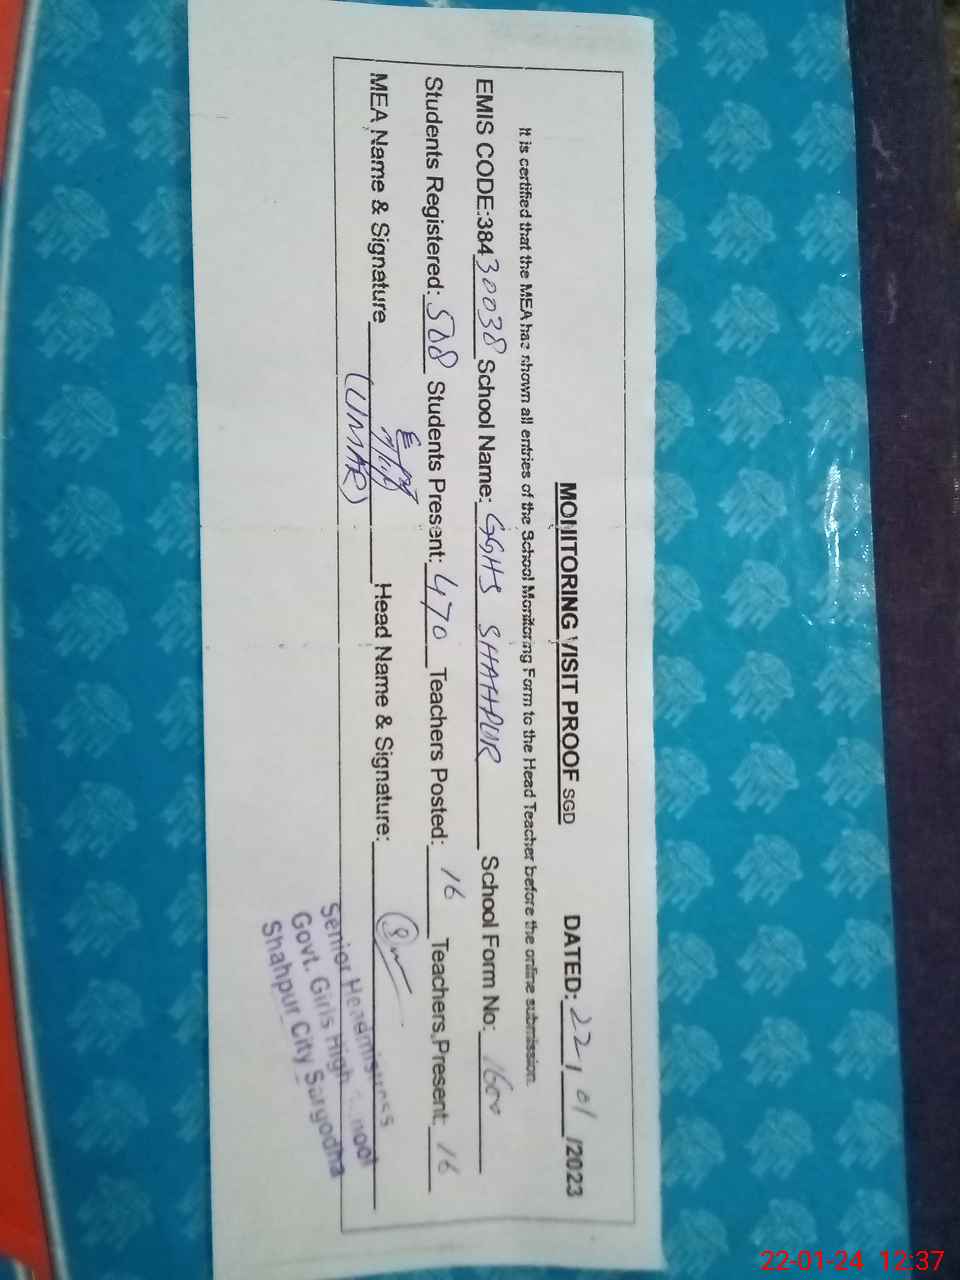 MONITORING VISIT PROOF SGD DATED: 22/01/2023
It is certified that the MEA has shown all entries of the School Monitoring Form to the Head Teacher before the online submission.
EMIS CODE:38430038 School Name: GGHS SHAHPUR School Form No: 1600
Students Registered: 508 Students Present: 470 Teachers Posted: 16 Teachers Present: 16
MEA Name & Signature Head Name & Signature:
(UMAR)
Senior Headmistress
Govt. Girls High School
Shahpur City Sargodha
22-01-24 12:37